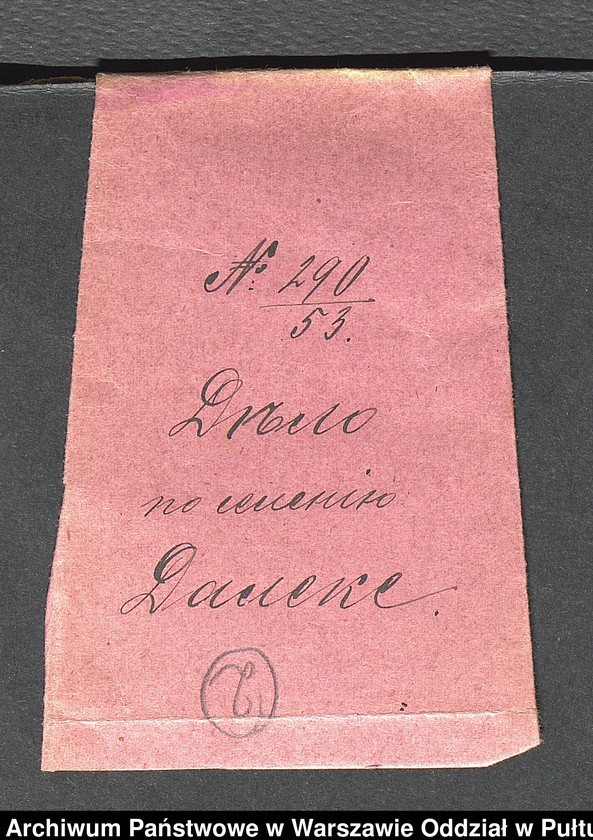 № 290
53.
Дѣло
по имѣнію
Далекс.
Archiwum Państwowe w Warszawie Oddział w Pułtu